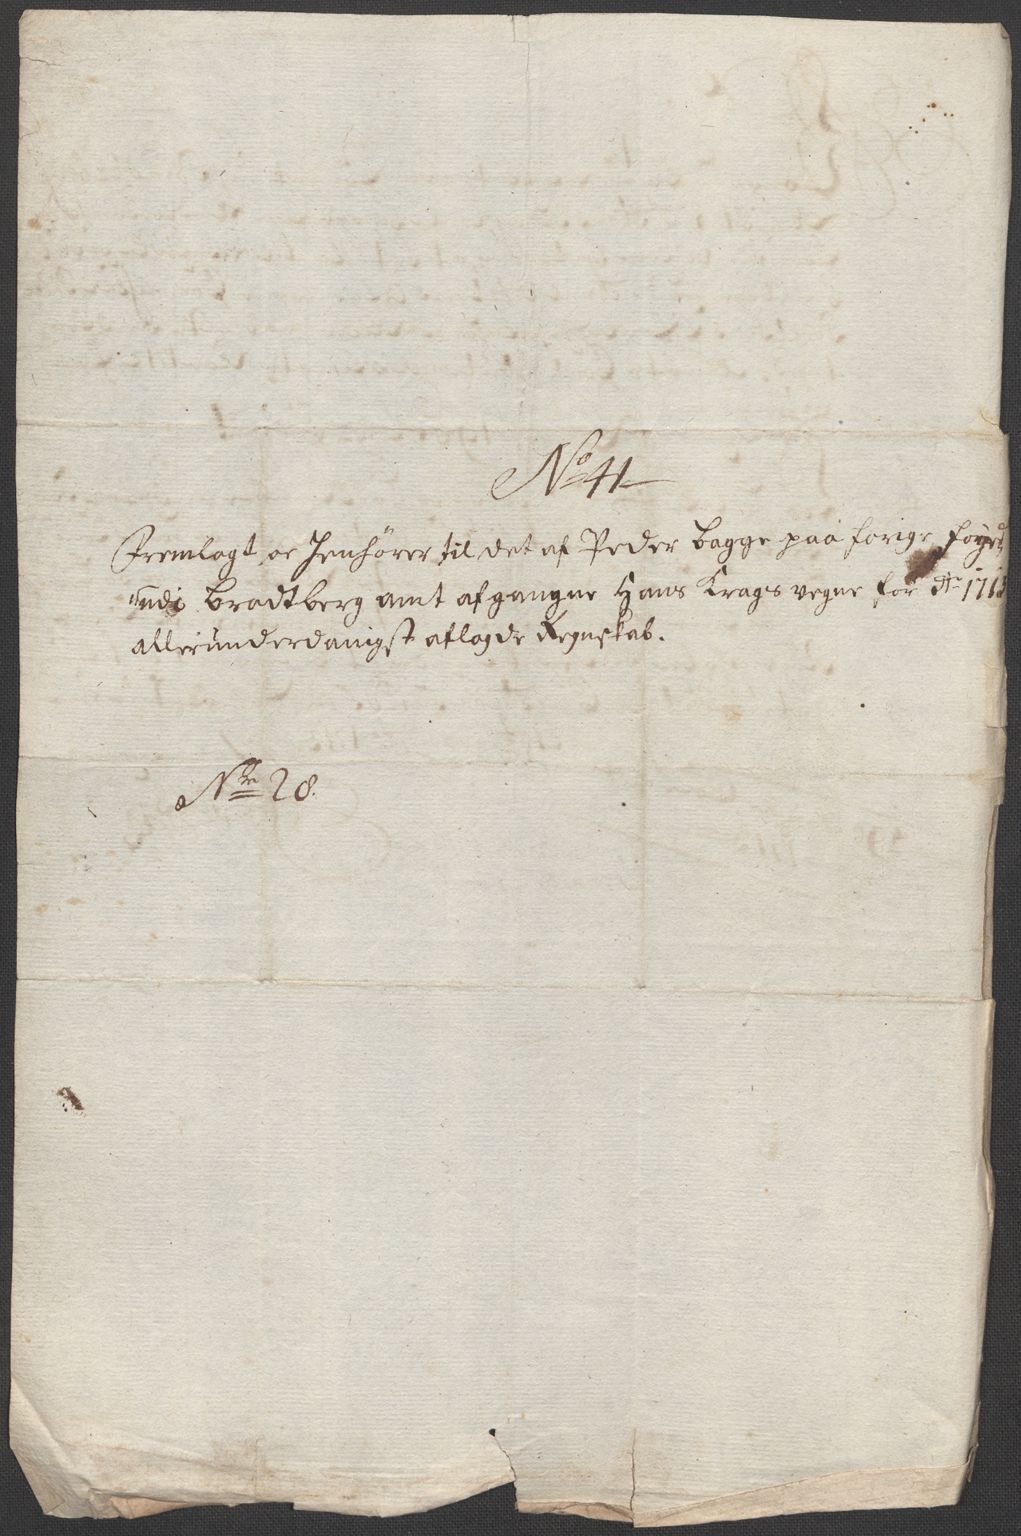 No 41
Fremlagt oc Henhörer til det af Peder Bagge paa forige foged
udi Bradtberg amt afgangne Hans Krags vegne for Ao
alleründerdanigst aflagde Regnskab.
Nr 28.